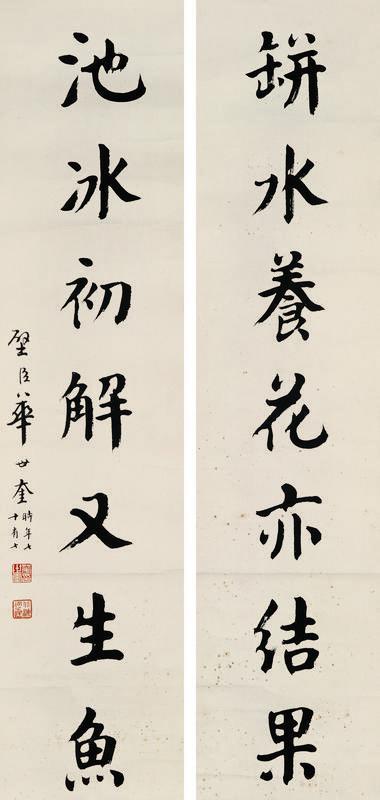 缾水養花亦結果
池冰初解又生魚
璧臣華世奎
時年七
十有七